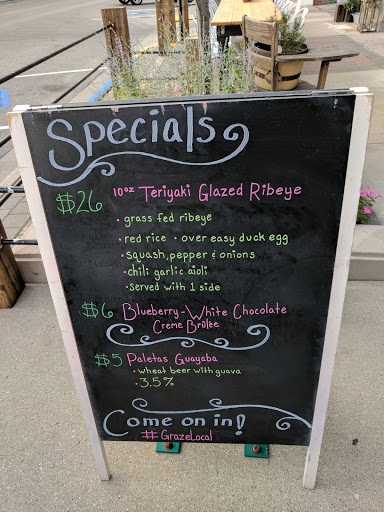 Specials
$26 10oz Teriyaki Glazed Ribeye
· grass fed ribeye
· red rice · over easy duck egg
· squash, pepper & onions
· chili garlic aioli
· Served with 1 side
$6 Blueberry-White Chocolate
Creme Brûlée
$5 Paletas Guayaba
· wheat beer with guava
· 3.5%
Come on in!
#GrazeLocal